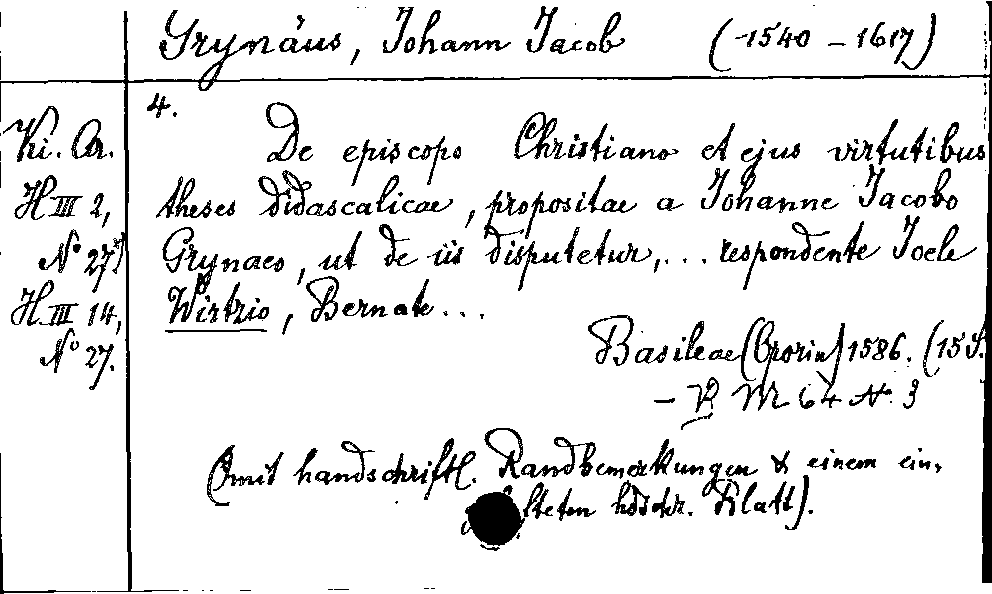 Grynäus, Johann Jacob (1540 – 1617)
4.
Ki. Ar. De episcopo Christiano et ejus virtutibus
H III 2, theses didascalicae, propositae a Johanne Jacobo
No 27 Grynaeo, ut de iis disputetur,... respondente Joele
H. III 14, Wirtzio, Bernate...
No 27. Basileae (Oporin) 1586. (15 S.
– M 64 No. 3
(mit handschriftl. Randbemerkungen & einem ein-
hdschr. Blatt).